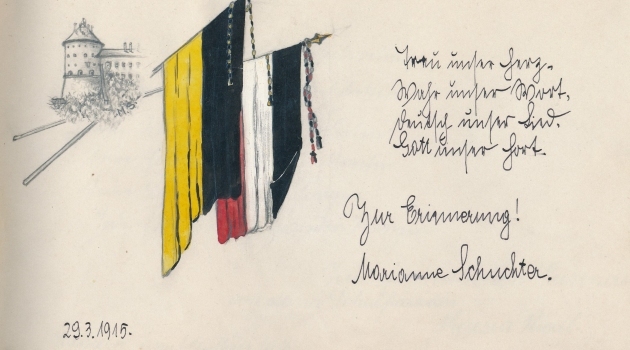 Treu unser Herz.
Wahr unser Wort.
Deutsch unser Lied.
Gott unser Hort.
Zur Erinnerung!
Marianne Schuchter.
29.3.1915.